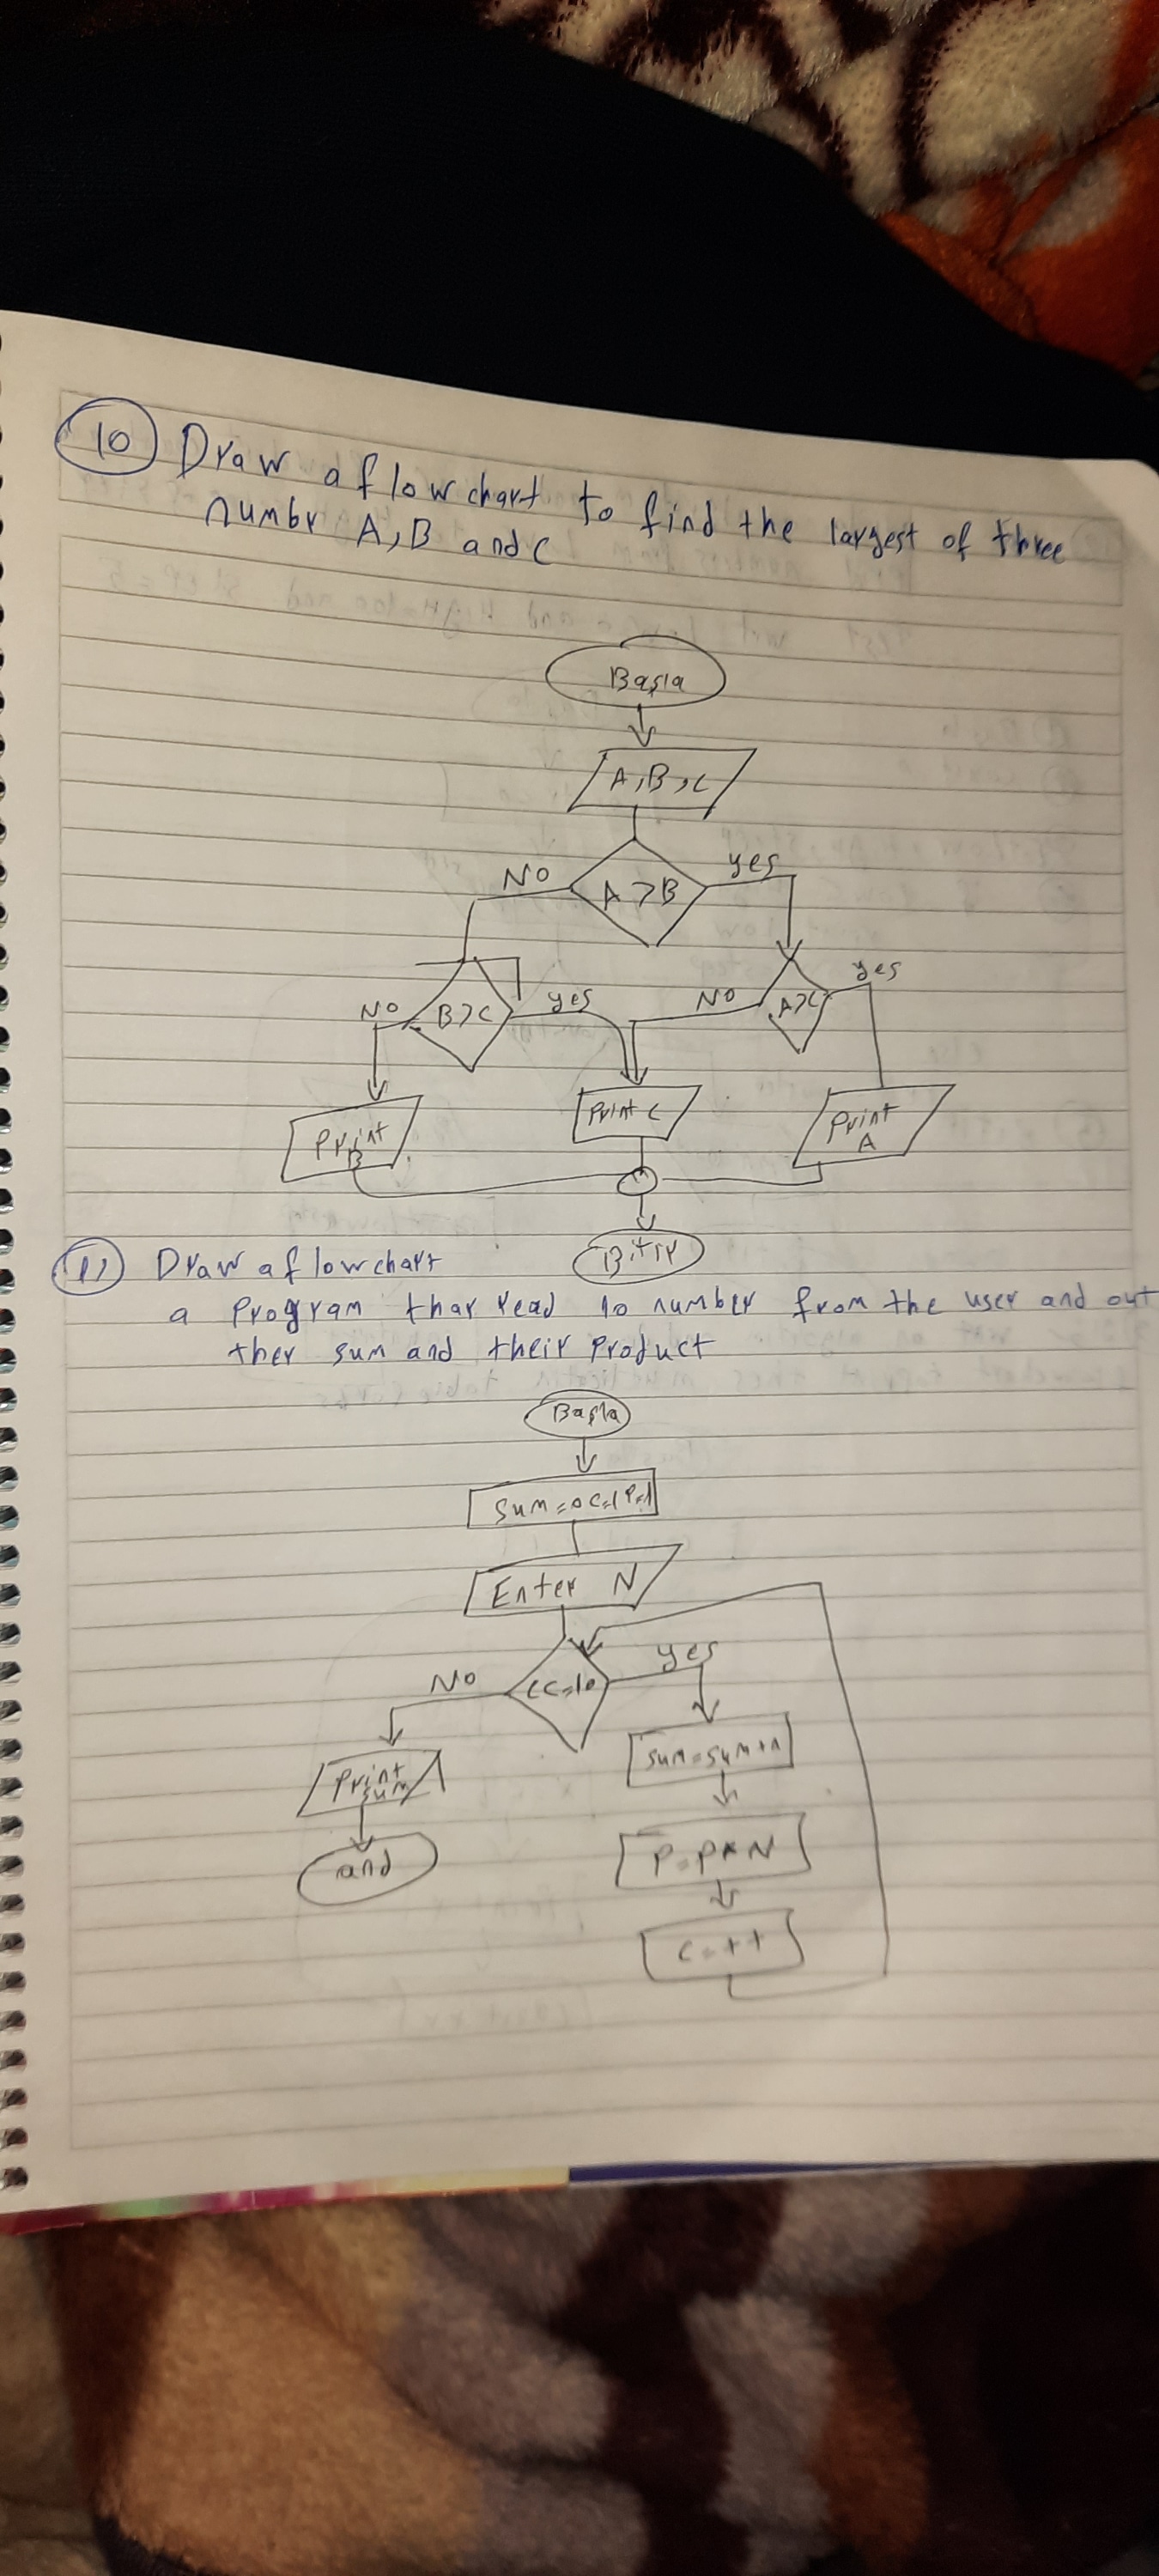 10 Draw a flowchart to find the largest of three
numbr A,B and C
Başla
A,B,C
A>B
NO
yes
B>C
NO
yes
A>C
NO
yes
Print
B
Print C
Print
A
Bitir
11 Draw a flowchart
a Program thar read 10 number from the user and out
ther sum and their Product
Başla
Sum=0 C=1 P=1
Enter N
C<=10
NO
yes
Print
sum
and
sum=sum+n
P=P*N
C=++